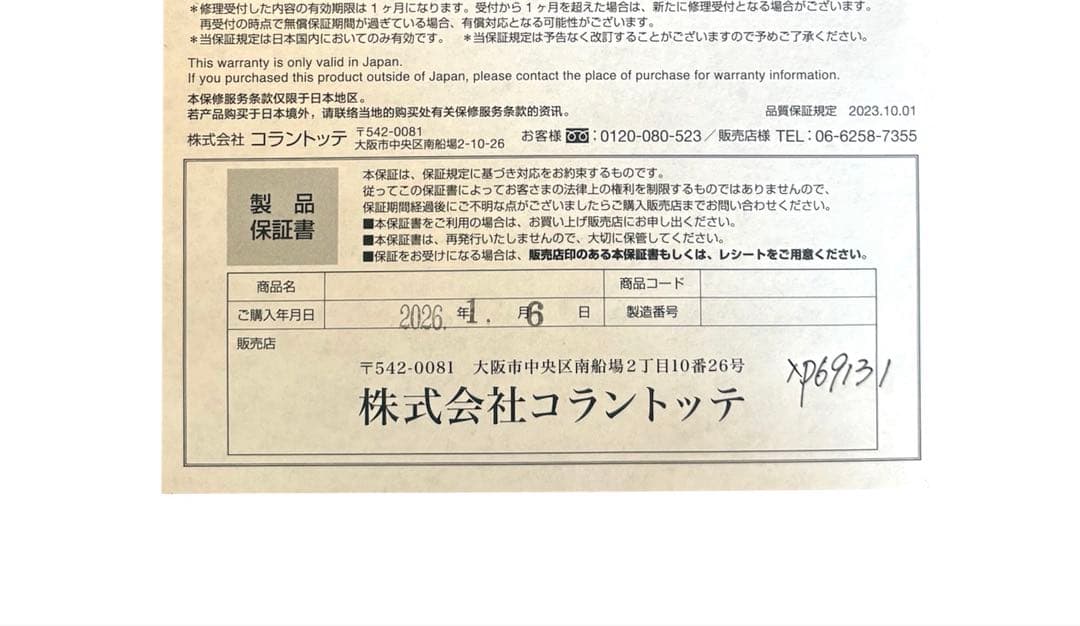 ＊修理受付した内容の有効期限は1ヶ月になります。受付から1ヶ月を超えた場合は、新たに修理受付となる場合がございます。
再受付の時点で無償保証期間が過ぎている場合、有償対応となる可能性がございます。
＊当保証規定は日本国内においてのみ有効です。 ＊当保証規定は予告なく改訂することがございますので予めご了承ください。
This warranty is only valid in Japan.
If you purchased this product outside of Japan, please contact the place of purchase for warranty information.
本保修服务条款仅限于日本地区。
若产品购买于日本境外，请联络当地的购买处有关保修服务条款的资讯。
品質保証規定 2023.10.01
株式会社 コラントッテ 〒542-0081 大阪市中央区南船場2-10-26 お客様 : 0120-080-523／販売店様 TEL : 06-6258-7355
製品
保証書
本保証は、保証規定に基づき対応をお約束するものです。
従ってこの保証書によってお客さまの法律上の権利を制限するものではありませんので、
保証期間経過後にご不明な点がございましたらご購入販売店までお問い合わせください。
■本保証書をご利用の場合は、お買い上げ販売店にお申し出ください。
■本保証書は、再発行いたしませんので、大切に保管してください。
■保証をお受けになる場合は、販売店印のある本保証書もしくは、レシートをご用意ください。
商品名 商品コード
ご購入年月日 2026. 年 1. 月 6 日 製造番号
販売店
〒542-0081 大阪市中央区南船場2丁目10番26号
株式会社コラントッテ
xp69131